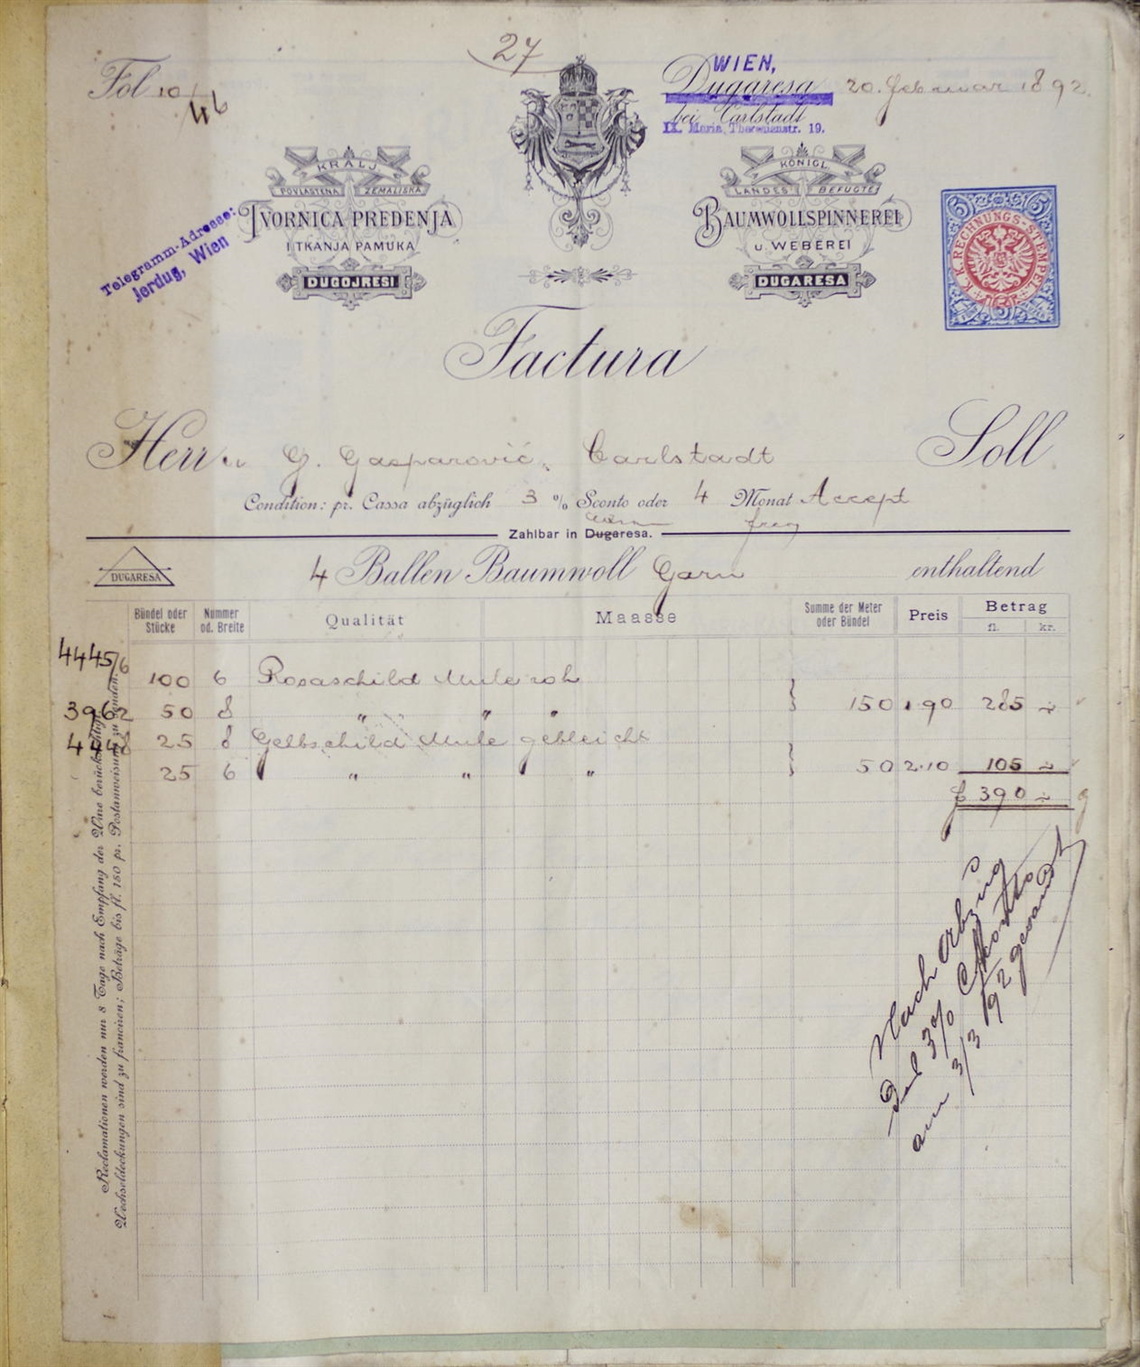 27
Fol 10/46
WIEN,
Dugaresa 20. Februar 1892
bei Carlstadt
IX. Maria Theresienstr. 19.
Telegramm-Adresse:
Jerdug, Wien
KRALJ.
POVLAŠTENA ZEMALJSKA
TVORNICA PREDENJA
I TKANJA PAMUKA
DUGOJRESI
KÖNIGL.
LANDES BEFUGTE
BAUMWOLLSPINNEREI
u. WEBEREI
DUGARESA
5 5
K. RECHNUNGS-STEMPEL
Factura
Herrn G. Gasparović, Carlstadt Soll
Condition: pr. Cassa abzüglich 3 % Sconto oder 4 Monat Accept
Zahlbar in Dugaresa.
DUGARESA
4 Ballen Baumwoll Garn enthaltend
Bündel oder Stücke Nummer od. Breite Qualität Maasse Summe der Meter oder Bündel Preis Betrag
fl. kr.
4445/6 100 6 Rosaschild Mule roh
3962 50 8 " " " 150 1.90 285 ~
25 8 Gelbschild Mule gebleicht
25 6 " " " 50 2.10 105 ~
f 390 ~
Nach Abzug
3% Skonto
am 3/3 192 gesandt
Reclamationen werden nur 8 Tage nach Empfang der Ware berücksichtigt.
Wechseldeckungen sind zu franciren; Beträge bis fl. 150 pr. Postanweisung zu senden.